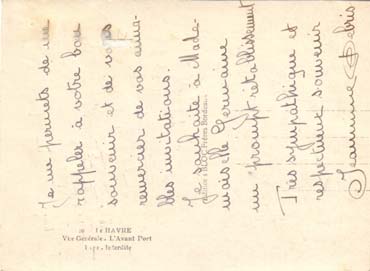 Je me permets de me
rappeler à votre bon
souvenir et de vous
remercier de vos aima-
bles invitations.
Je souhaite à Made-
moiselle Germaine
un prompt rétablissement
Très sympathique et
respectueux souvenir
Jeannine Debris
Le HAVRE
Vue Générale - L'Avant Port
Repr. Interdite
Frères Bordeaux